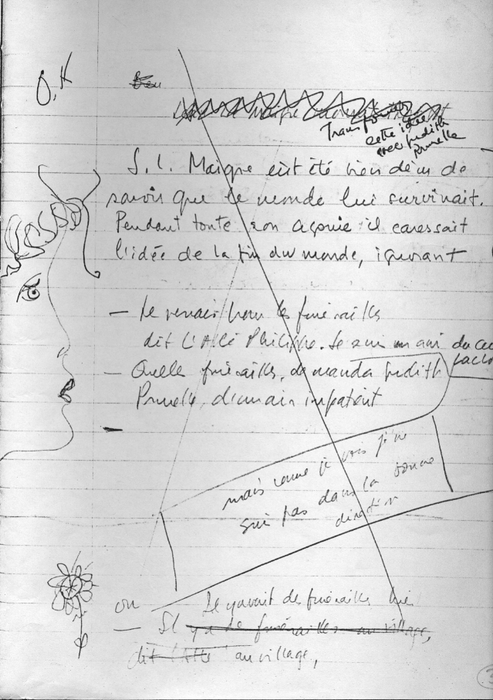 O.K
Transformer
cette idée
avec Judith
Prunelle
S. L. Maigre eut été bien déçu de
savoir que le monde lui survivait.
Pendant toute son agonie il caressait
l'idée de la fin du monde, ignorant
— Je venais pour les funérailles
dit l'Abbé Philippe. Je suis un ami du
— Quelle funérailles, demanda Judith
Prunelle, d'un air impatient
mais comme je vois je ne
suis pas dans la bonne
direction
ou Il y avait de funérailles
— Il y a de funérailles au village,
dit l'Abbé au village,